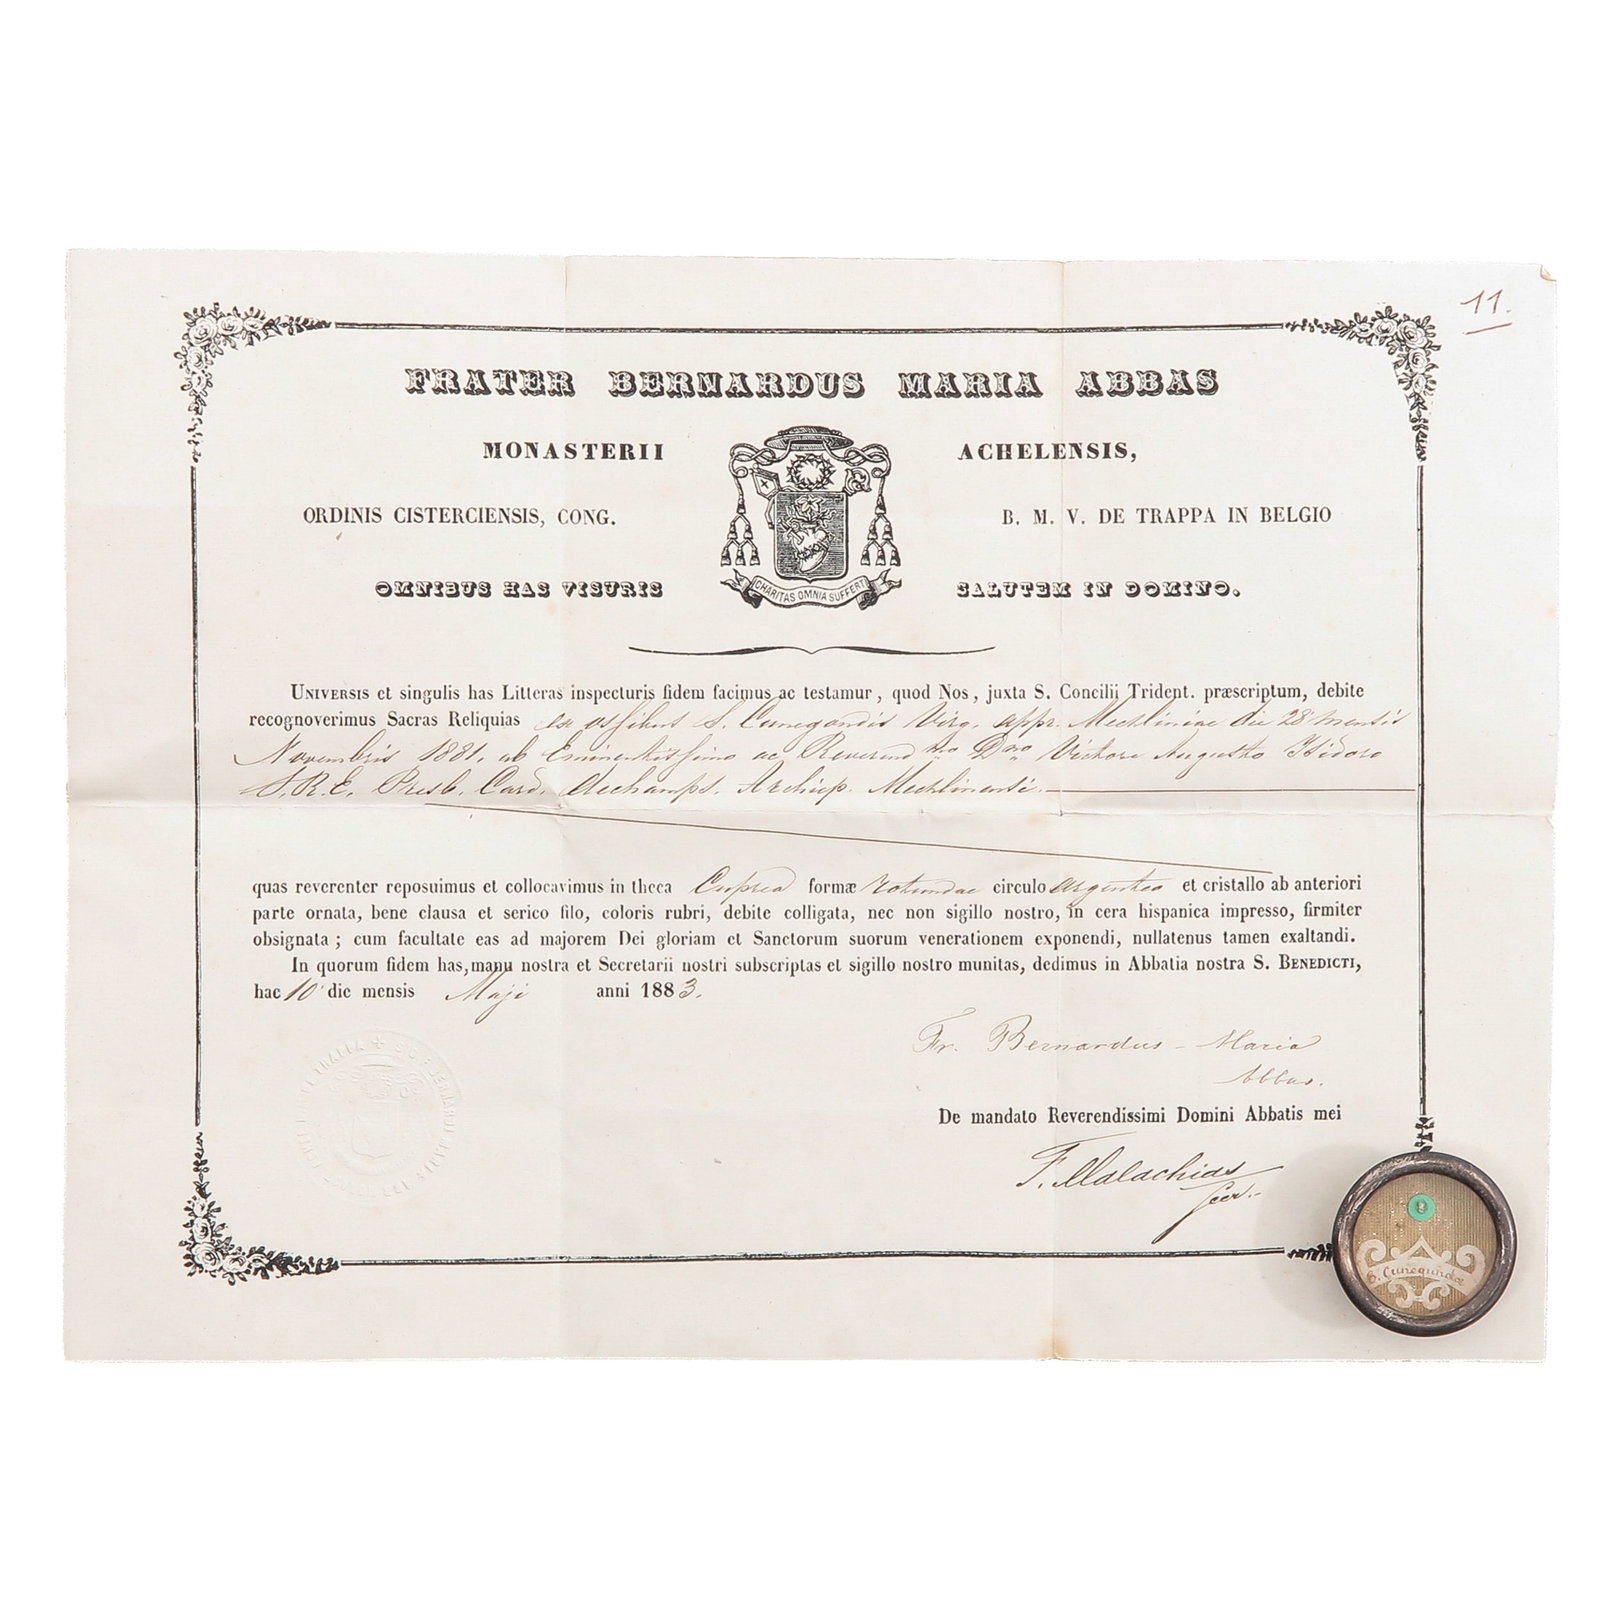 11.
FRATER BERNARDUS MARIA ABBAS
MONASTERII ACHELENSIS,
ORDINIS CISTERCIENSIS, CONG. B. M. V. DE TRAPPA IN BELGIO
OMNIBUS HAS VISURIS SALUTEM IN DOMINO.
CHARITAS OMNIA SUFFERT
UNIVERSIS et singulis has Litteras inspecturis fidem facimus ac testamur, quod Nos, juxta S. Concilii Trident. præscriptum, debite
recognoverimus Sacras Reliquias ex ossibus S. Cunegondis Virg. appr. Mechliniae die 28 mensis
Novembris 1881, ab Eminentissimo ac Reverend mo Dno Victore Augusto Isidoro
S. R. E. Presb. Card. dechamps. Archiep. Mechliniensi.
quas reverenter reposuimus et collocavimus in theca Cuprea formæ rotundae circulo argenteo et cristallo ab anteriori
parte ornata, bene clausa et serico filo, coloris rubri, debite colligata, nec non sigillo nostro, in cera hispanica impresso, firmiter
obsignata; cum facultate eas ad majorem Dei gloriam et Sanctorum suorum venerationem exponendi, nullatenus tamen exaltandi.
In quorum fidem has, manu nostra et Secretarii nostri subscriptas et sigillo nostro munitas, dedimus in Abbatia nostra S. BENEDICTI,
hac 10 die mensis Maji anni 1883.
Fr. Bernardus - Maria
Abbas.
De mandato Reverendissimi Domini Abbatis mei
F. Malachias
Secr.
S. Cunegundæ